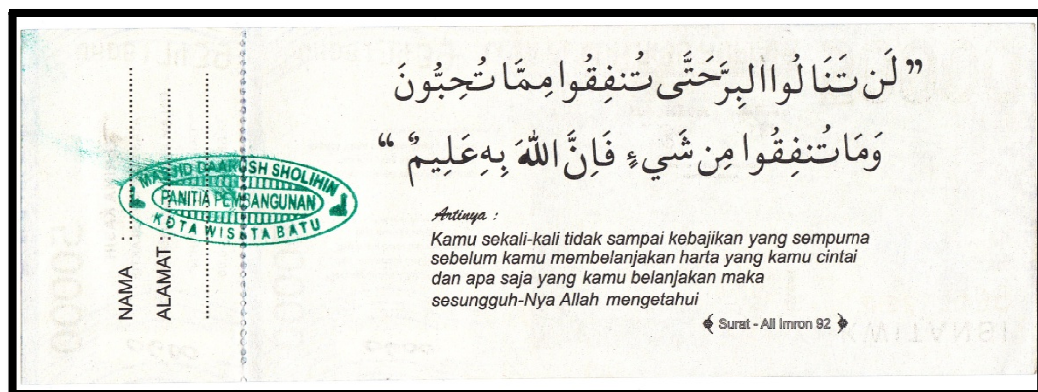 NAMA :
ALAMAT :
MASJID DAARUSH SHOLIHIN
PANITIA PEMBANGUNAN
KOTA WISATA BATU
” لَن تَنَالُوا البِرَّ حَتَّى تُنفِقُوا مِمَّا تُحِبُّونَ
وَمَا تُنفِقُوا مِن شَيءٍ فَإِنَّ اللهَ بِهِ عَلِيمٌ “
Artinya :
Kamu sekali-kali tidak sampai kebajikan yang sempurna
sebelum kamu membelanjakan harta yang kamu cintai
dan apa saja yang kamu belanjakan maka
sesungguh-Nya Allah mengetahui
Surat - Ali Imron 92